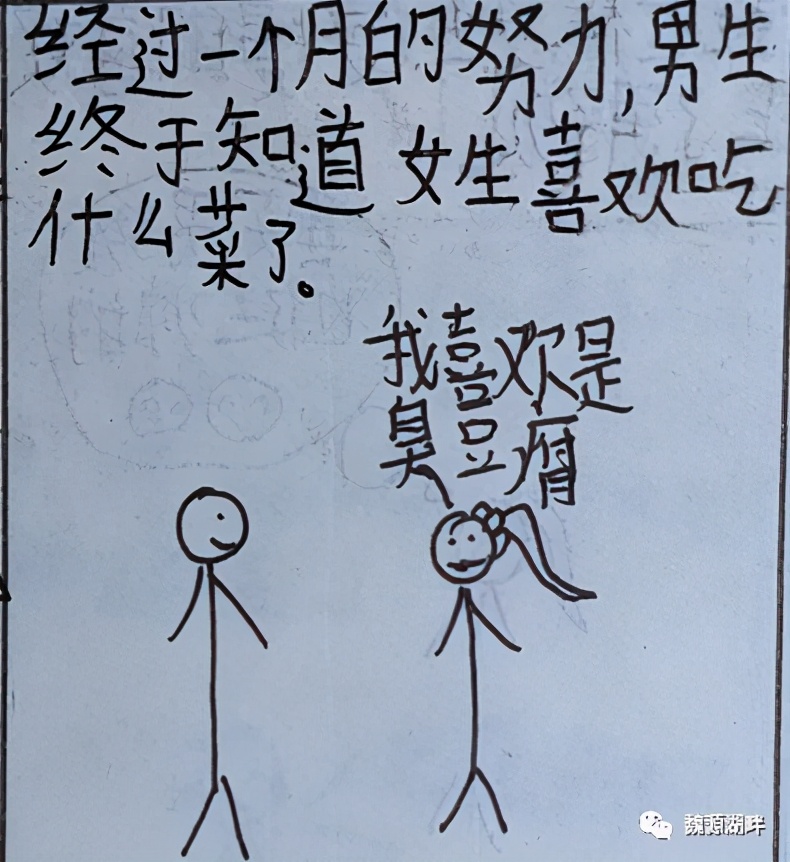 经过一个月的努力,男生
终于知道女生喜欢吃
什么菜了。
我喜欢是
臭豆腐
魏源湖畔